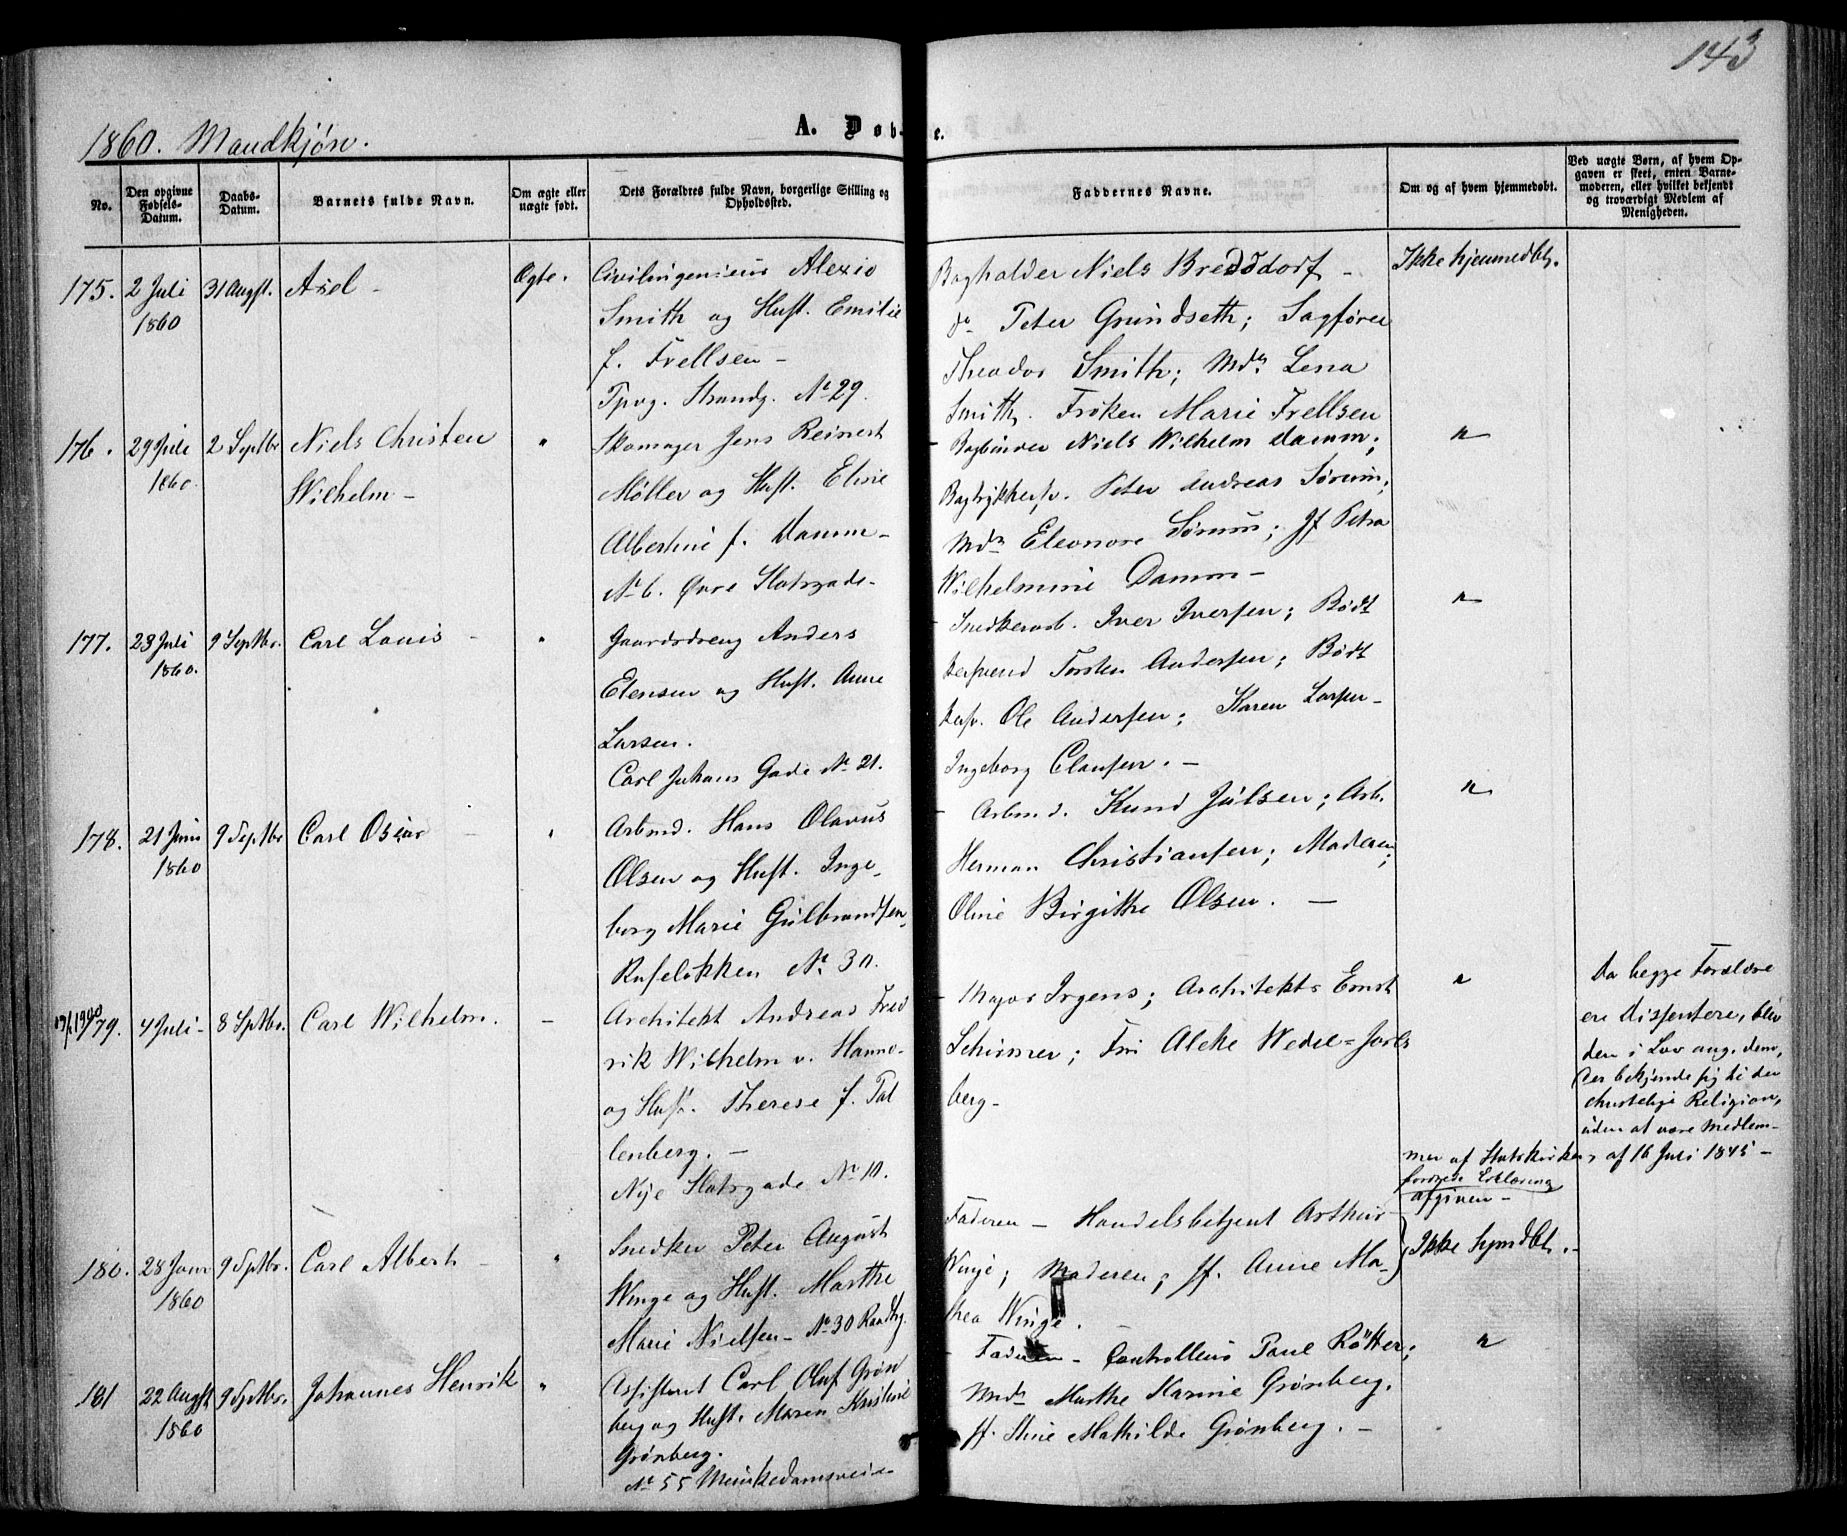 143
1860. Mandkjøn.
A. Døb-
e.
No.
Den opgivne Fødsels-Datum.
Daabs-Datum.
Barnets fulde Navn.
Om ægte eller uægte født.
Dets Forældres fulde Navn, borgerlige Stilling og Opholdssted.
Faddernes Navne.
Om og af hvem hjemmedøbt.
Ved uægte Børn, af hvem Op-
gaven er skeet, enten Barne-
moderen, eller hvilket bekjendt
og troværdigt Medlem af
Menigheden.
175.
2 Juli
1860
31 Augst.
Axel -
Ægte.
Civilingenieur Alexis
Smith og Hust. Emilie
f. Frellsen -
Tpvg. Strandg. No 29.
Bogholder Niels Bredsdorf -
do Peter Grundseth; Sagfører
Theodor Smith; Mdm Lena
Smith. Frøken Marie Frellsen
Ikke hjemmedbt.
176.
29 Juli
1860.
2 Septbr
Niels Christen
Wilhelm -
"
Skomager Jens Reinert
Møller og Hust. Eline
Albertine f. Damm -
No 6. Øvre Slotsgade -
Bogbinder Niels Wilhelm Damm;
Bogtrykkersv. Peter Andreas Sørum;
Mdm Eleonore Sørum; Jf Petra
Wilhelmine Damm -
"
177.
23 Juli
1860.
9 Septbr.
Carl Louis -
"
Gaardsdreng Anders
Elensen og Hust. Anne
Larsen.
Carl Johans Gade No 21.
Snedkerarb. Iver Iversen; Bødt
kersvend Torsten Andersen; Bødt
kersv. Ole Andersen; Karen Larsen -
Ingeborg Clausen. -
"
178.
21 Juni
1860
9 Septbr
Carl Oscar -
"
Arbmd. Hans Olavus
Olsen og Hust. Inge-
borg Marie Gulbrandsen
Ruseløkken No 30.
Arbmd. Knud Julsen; Arb.
Herman Christiansen; Moderen;
Oline Birgitte Olsen. -
"
179.
4 Juli -
8 Sptbr.
Carl Wilhelm.
-
Architekt Andreas Fred
rik Wilhelm v. Hanno -
og Hust. Therese f. Tal
lenberg. -
Nye Slotsgade No 10.
Major Irgens; Architekt Ernst
Schirmer; Frø Alcke Wedel-Jarls
berg -
"
Da begge Forældre
ere dissentere, blev
den i Lov ang. dem,
der bekjende sig til den
christelige Religion,
uden at være Medlem-
mer af Statskirken, af 16 Juli 1845 -
fordrede Erklæring
afgiven -
180.
28 Janr
1860
9 Sptbr.
Carl Albert -
"
Snedker Peter August
Winge og Hust. Marthe
Marie Nielsen - No 30 Raadhg.
Faderen - Handelsbetjent Arthur
Winje; Moderen; Jf. Anne Ma-
thea Winge.
Ikke hjmdbt. -
181
22 Augst
1860
9 Sptbr.
Johannes Henrik
"
Assistent Carl Oluf Grøn
berg og Hust. Maren Kristine
Grønberg.
No 55 Munkedamsveien
Faderen - Controlleur Paul Røtter;
Mdm Marthe Karine Grønberg.
Jf. Stine Mathilde Grønberg. -
"